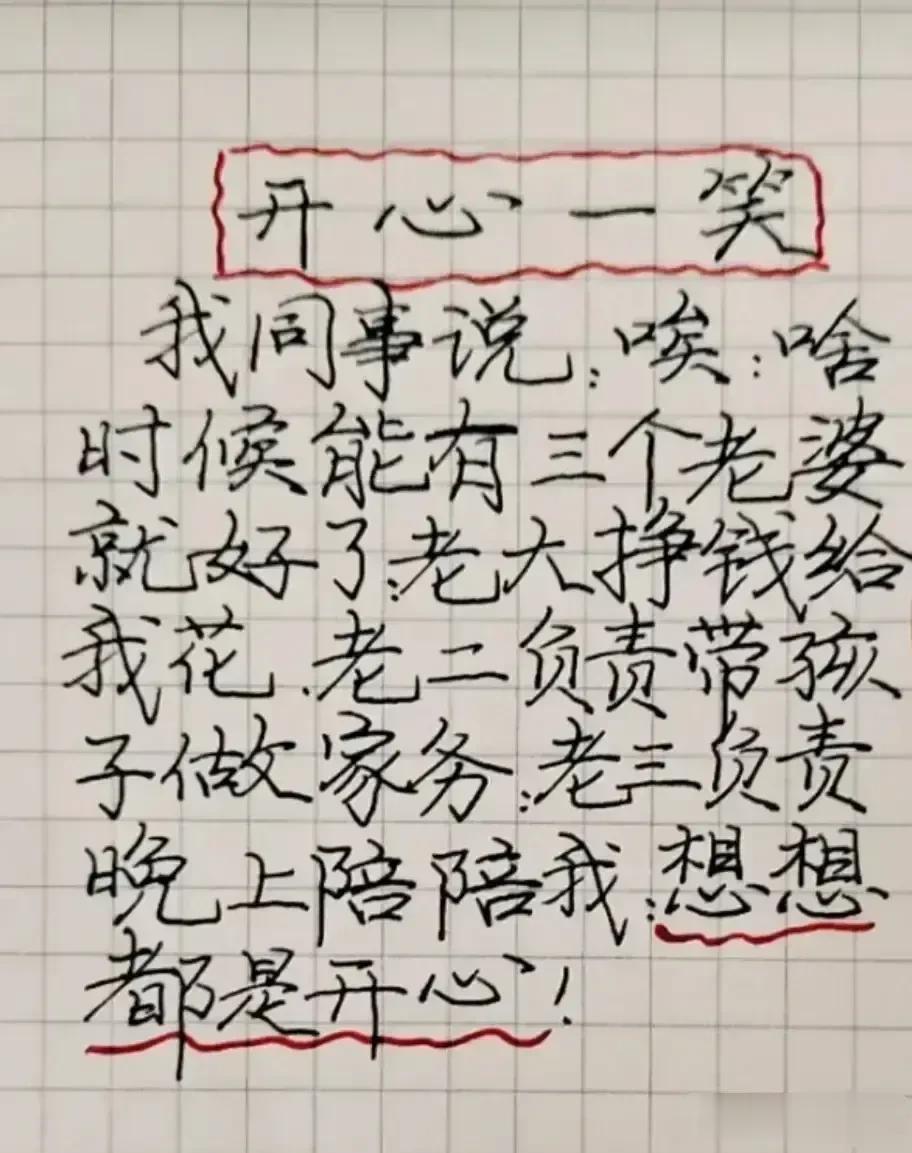 开心一笑
我同事说:唉:啥
时候能有三个老婆
就好了:老大挣钱给
我花.老二负责带孩
子做家务:老三负责
晚上陪陪我:想想
都是开心!